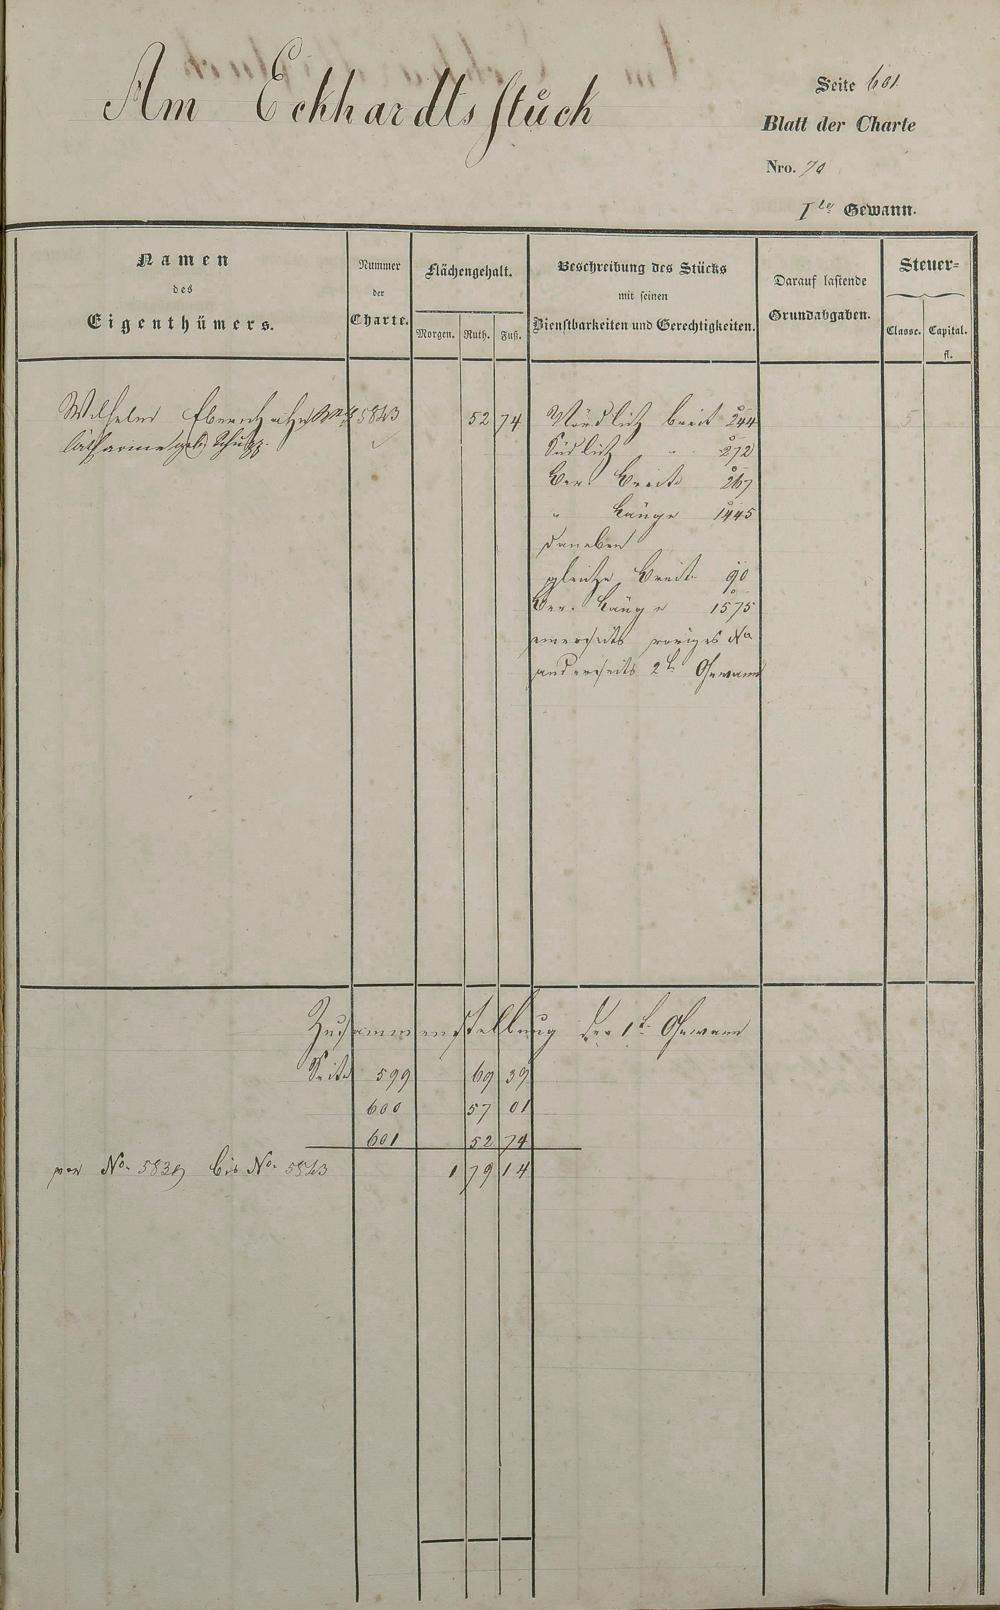 Am Eckhardtsstück
Seite 601.
Blatt der Charte
Nro. 70
Ite Gewann.
Namen
des
Eigenthümers.
Nummer
der
Charte.
Flächengehalt.
Morgen. Ruth. Fuß.
Beschreibung des Stücks
mit seinen
Dienstbarkeiten und Gerechtigkeiten.
Darauf lastende
Grundabgaben.
Steuer-
Classe. Capital.
fl.
Wilhelm 5843 52 74 Nördlich breit 244
Catharine geb. Schupp. Südlich " 272
Ber. Breite 267
" Länge 1445
daneben
gleiche Breite 90
Ber. Länge 1575
einerseits voriges No
anderseits 2te Gewann
Zusammenstellung der 1te Gewann
Seite 599 69 39
600 57 01
601 52 74
von No. 5839 bis No. 5843 1 79 14